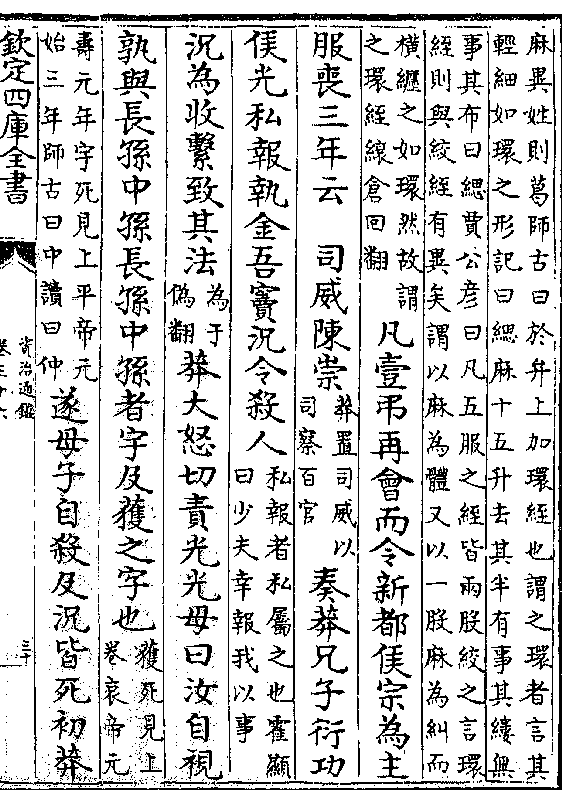 麻異姓則葛師古曰於弁上加環絰也謂之環者言其
輕細如環之形記曰緦麻十五升去其半有事其縷無
事其布曰緦賈公彦曰凡五服之絰皆兩股絞之言環
絰則與絞絰有異矣謂以麻為體又以一股麻為糾而
橫纒之如環然故謂
之環絰縗倉回翻
凡壹弔再會而令新都侯宗為主
服喪三年云　司威陳崇
莽置司威以
司察百官
奏莽兄子衍功
侯光私報執金吾竇況令殺人
私報者私屬之也霍顯
曰少夫幸報我以事
況為收繫致其法
為于
偽翻
莽大怒切責光光母曰汝自視
孰與長孫中孫長孫中孫者宇及獲之字也
獲死見上
卷哀帝元
壽元年宇死見上平帝元
始三年師古曰中讀曰仲
遂母子自殺及況皆死初莽
欽定四庫全書
資治通鑑
卷三十六
三十